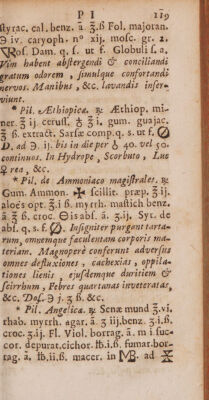 P I 119
styrac. cal. benz. ā. ʒ.ß Fol. majoran.
℈ iv. caryoph. nº xij. mosc. gr. 2.
Ros. Dam. q. s. ut f. Globuli s. a.
Vim habent abstergendi & conciliandi
gratum odorem, simulque confortandi
nervos. Manibus, &c. lavandis inser-
viunt.
* Pil. Æthiopicæ. ℞ Æthiop. miner.
ʒ ij. ceruss. ♁ ʒ i. gum. guajac.
ʒ ß. extract. Sarsæ comp. q. s. ut f.
D. ad ℈. ij. bis in die per 40. vel 50.
continuos. In Hydrope, Scorbuto, Lue
♀rea, &c.
* Pil. de Ammoniaco magistrales. ℞
Gum. Ammon. scillit. præp. ʒ ij.
aloës opt. ʒ i. ß myrrh. mastich benz.
ā. ʒ ß. croc. abs. ā. ʒ.ij. Syr. de
abs. q. s. f. Insigniter purgant tarta-
rum, omnemque fæculentam corporis ma-
teriam. Magnoperè conferunt adversus
omnes defluxiones, cachexias, oppila-
tiones lienis, ejusdemque duritiem &
scirrhum, Febres quartanas inveteratas,
&c. Dos. ℈ j. ʒ ß. &c.
* Pil. Angelicæ. ℞ Senæ mund ʒ.vi.
rhab. myrrh. agar. ā ʒ iij. benz. ʒ.i.ß.
croc. ʒ.ij. Fl. Viol. borrag. ā. m i suc-
cor. depurat. cichor. ℔.i.ß. fumar. bor-
rag. ā. ℔.ii.ß. macer. in MB. ad